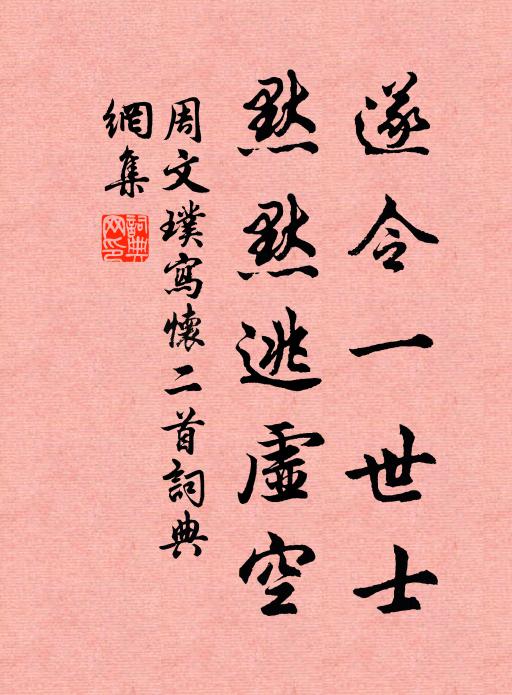 遂令一世士
默默逃虛空
周文璞寫懷二首詞典
網集
詞典
网印